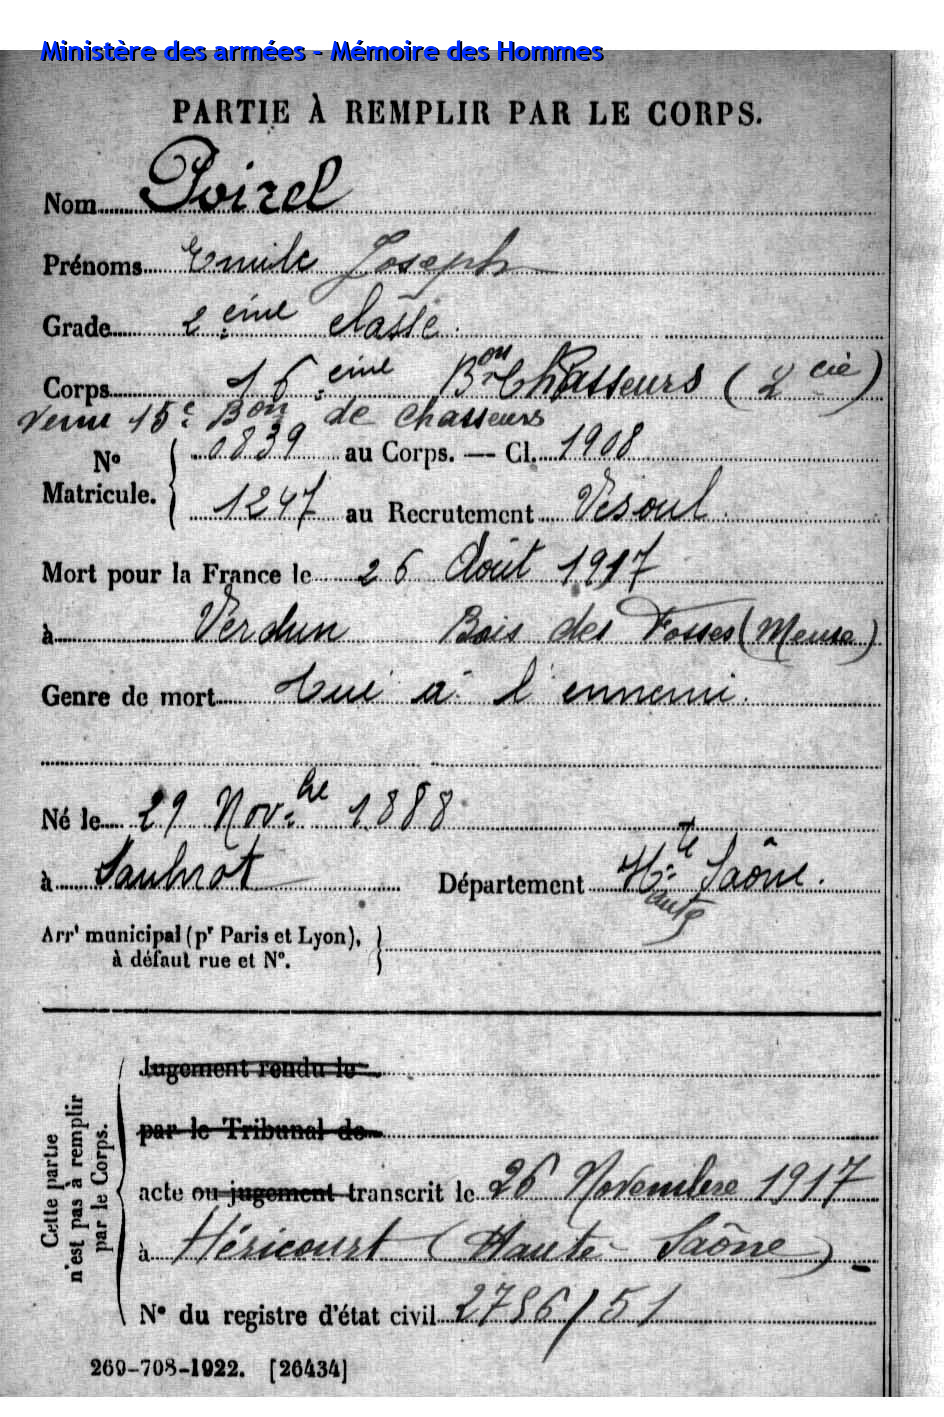 Ministère des armées - Mémoire des Hommes
PARTIE À REMPLIR PAR LE CORPS.
Nom Poirel
Prénoms Emile Joseph
Grade 2.eme classe.
Corps 16.eme Bon Chasseurs (2 cie)
15e Bon de chasseurs
N° Matricule. 0839 au Corps. — Cl. 1908
1247 au Recrutement Vesoul.
Mort pour la France le 26 Août 1917
à Verdun Bois des Fosses (Meuse)
Genre de mort tué à l'ennemi.
Né le 29 Nov.bre 1888
à Saulnot Département Hte Saône.
aute
Arrt municipal (pr Paris et Lyon),
à défaut rue et N°.
Cette partie
n'est pas à remplir
par le Corps.
Jugement rendu le
par le Tribunal de
acte ou jugement transcrit le 26 Novembre 1917
à Héricourt (Haute-Saône)
N° du registre d'état civil 2796/51
269-708-1922. [26434]